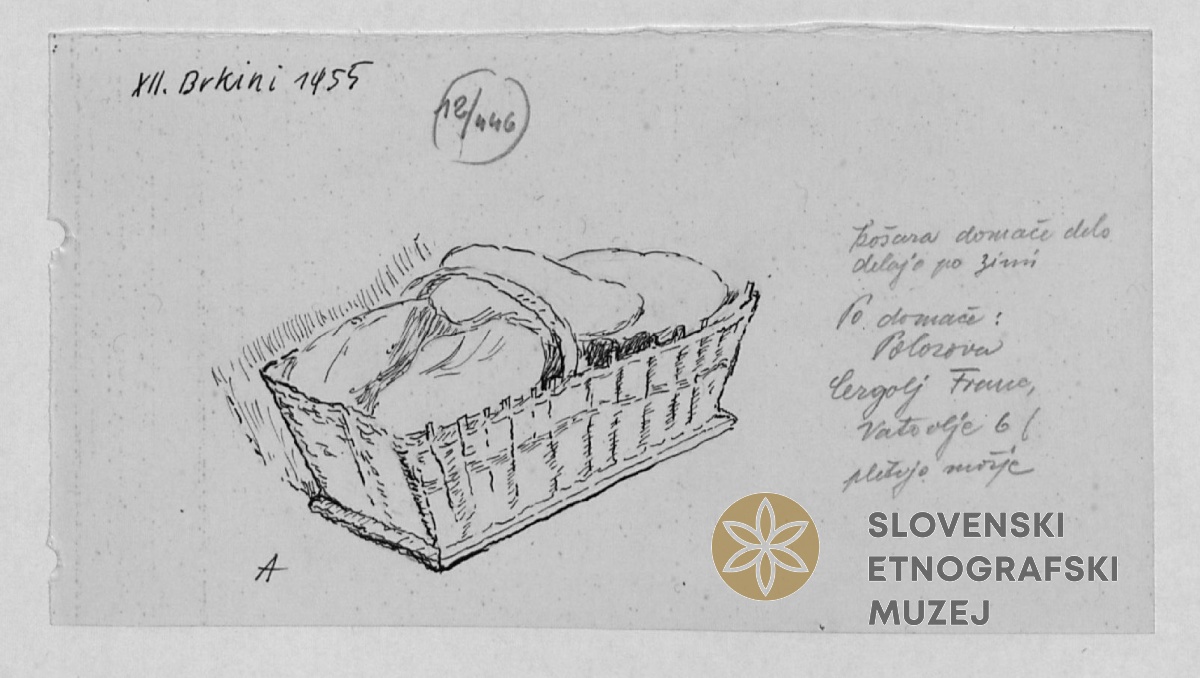 XII. Brkini 1955
12/446
košara domače delo
delajo po zimi
Po domače:
Polozova
Cergolj Franc,
Vatovlje 6 (
pletejo možje
A
SLOVENSKI
ETNOGRAFSKI
MUZEJ